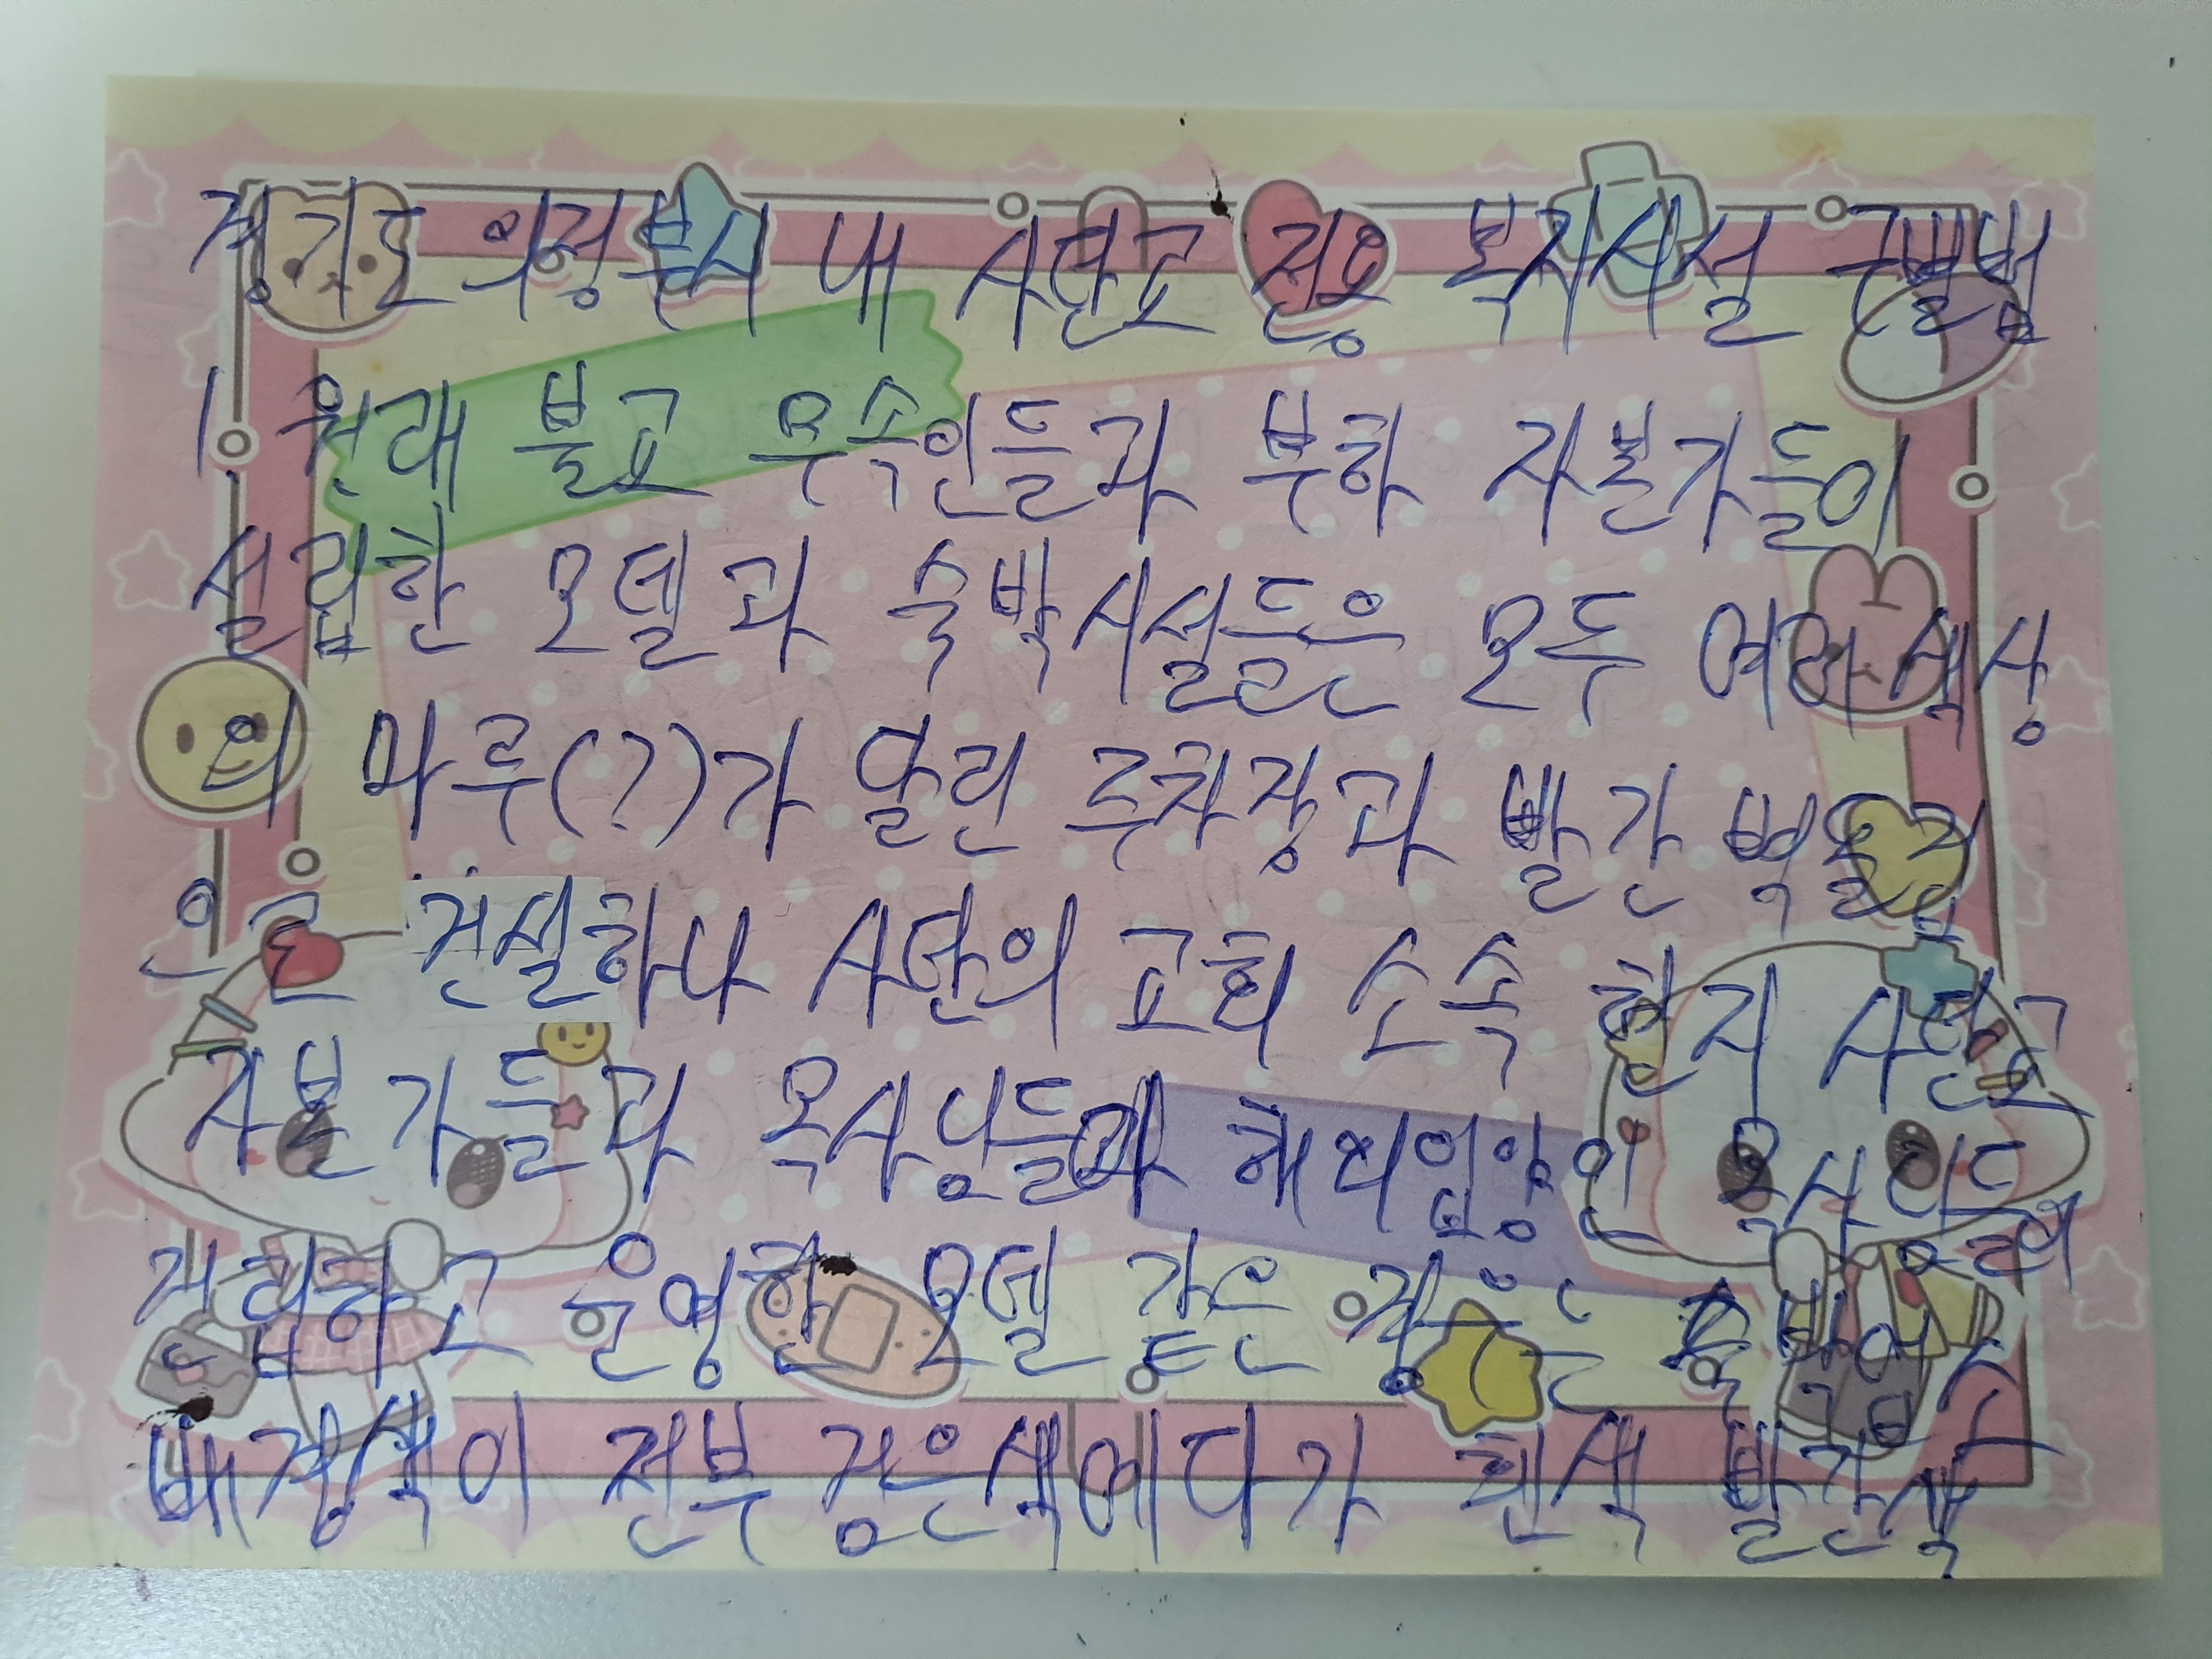 경기도 의정부시 내 사탄교 전용 복지시설 구별법
1. 원래 불교 무속인들과 부하 자본가들이
설립한 모텔과 숙박시설들은 모두 여러 색상
의 마루(?)가 달린 주차장과 빨간 벽돌건
으로 건설하나 사탄의 교회 소속 현지 사탄교
자본가들과 목사님들과 해외입양인 목사님들이
건립하고 운영한 모텔 같은 경우는 숙박업소
배경색이 전부 검은색에다가 흰색 빨간색